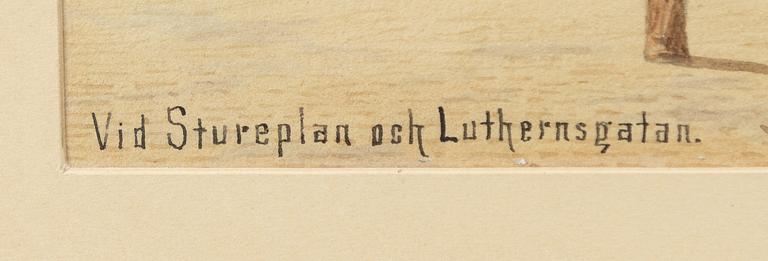 Vid Stureplan och Luthernsgatan.